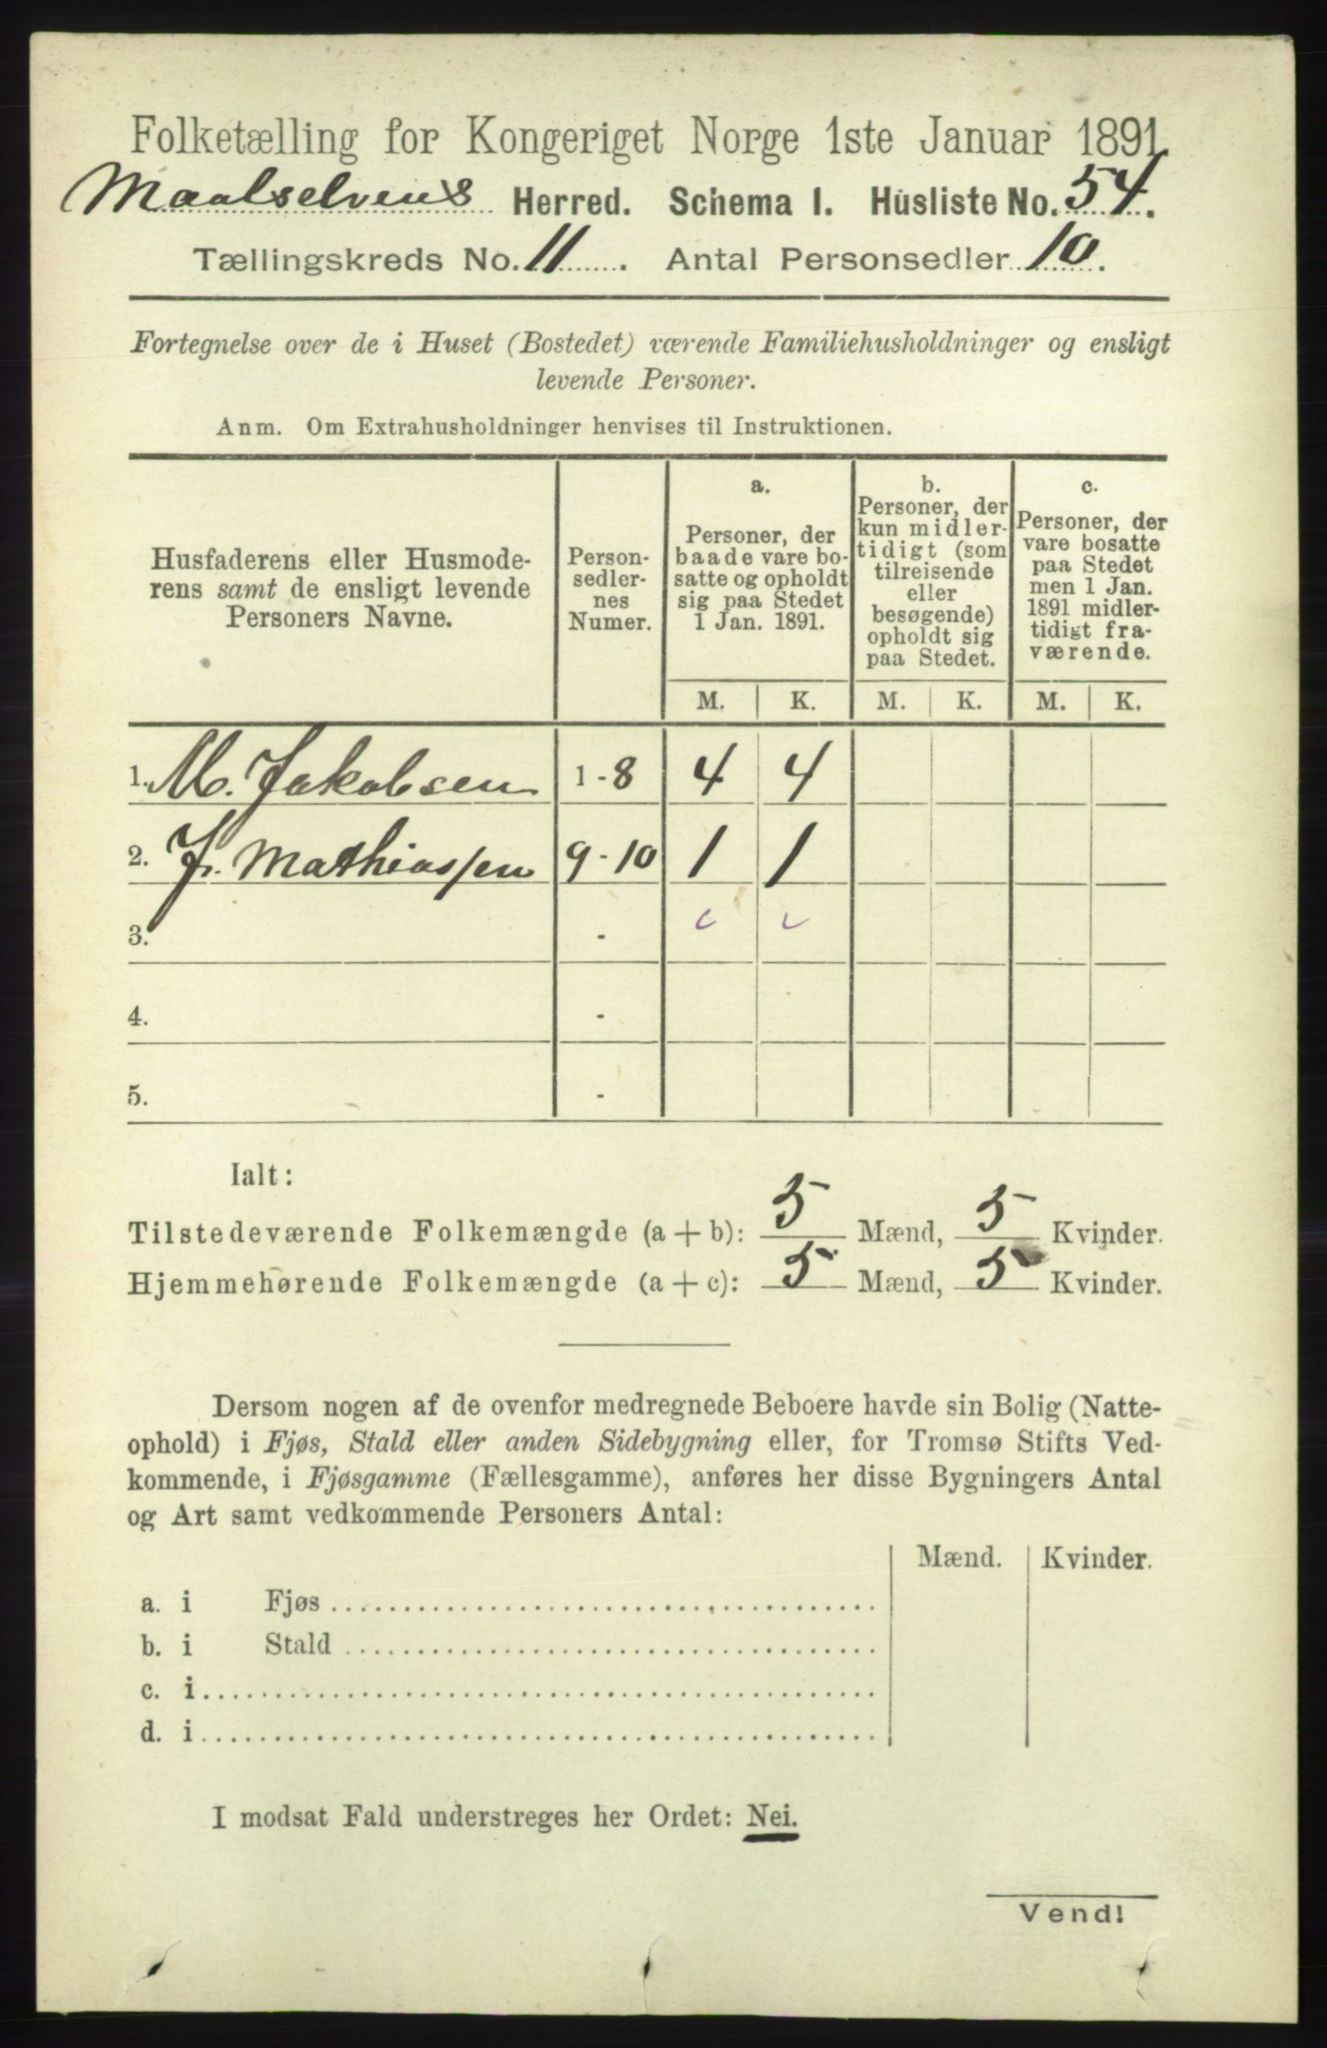 Folketælling for Kongeriget Norge 1ste Januar 1891.
Maalselvens Herred. Schema I. Husliste No. 54.
Tællingskreds No. 11. Antal Personsedler 10.
Fortegnelse over de i Huset (Bostedet) værende Familiehusholdninger og ensligt
levende Personer.
Anm. Om Extrahusholdninger henvises til Instruktionen.
Husfaderens eller Husmode-
rens samt de ensligt levende
Personers Navne.
Person-
sedler-
nes
Numer.
a.
Personer, der
baade vare bo-
satte og opholdt
sig paa Stedet
1 Jan. 1891.
b.
Personer, der
kun midler-
tidigt (som
tilreisende
eller
besøgende)
opholdt sig
paa Stedet.
c.
Personer, der
vare bosatte
paa Stedet
men 1 Jan.
1891 midler-
tidigt fra-
værende.
M. K. M. K. M. K.
1. M. Jakobsen 1-8 4 4
2. J. Mathiassen 9-10 1 1
3. -
4. -
5. -
Ialt:
Tilstedeværende Folkemængde (a + b): 5 Mænd, 5 Kvinder.
Hjemmehørende Folkemængde (a + c): 5 Mænd, 5 Kvinder.
Dersom nogen af de ovenfor medregnede Beboere havde sin Bolig (Natte-
ophold) i Fjøs, Stald eller anden Sidebygning eller, for Tromsø Stifts Ved-
kommende, i Fjøsgamme (Fællesgamme), anføres her disse Bygningers Antal
og Art samt vedkommende Personers Antal:
Mænd. Kvinder.
a. i Fjøs
b. i Stald
c. i
d. i
I modsat Fald understreges her Ordet: Nei.
Vend!